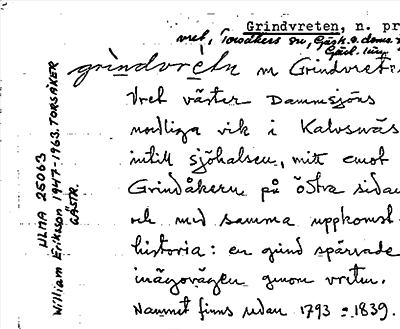 Grindvreten, n. pr
vret, Torsåkers sn, Gästr. o. doms
Gävl. län
grindvrétn m Grindvreten
Vret väster Dammsjöns
nordliga vik i Kalvsnäs
intill sjöhalsen, mitt emot
Grindåkern på östra sidan
och med samma uppkomst-
historia: en grind spärrade
inägovägen genom vreten.
Namnet finns redan 1793 o 1839.
ULMA 25063
William Eriksson 1947-1963. TORSÅKER
GÄSTR.